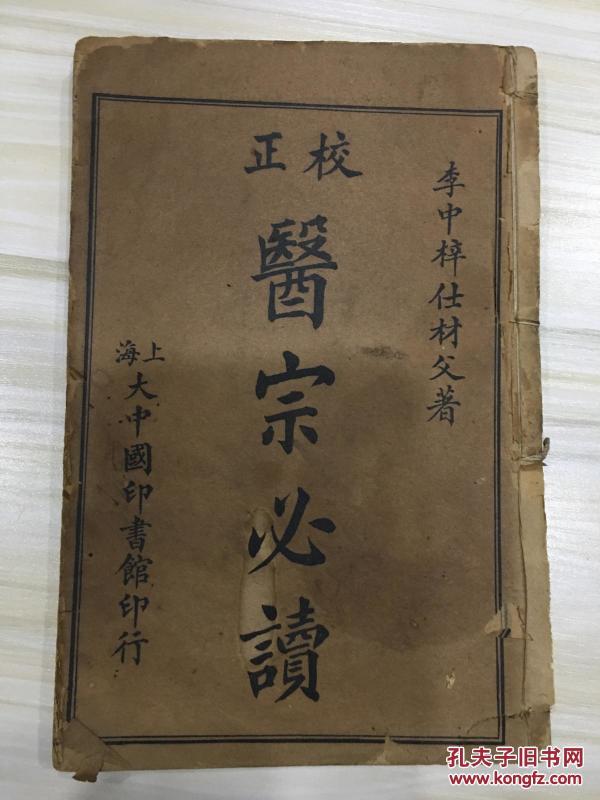 李中梓仕材父著
校正
醫宗必讀
上海
大中國印書館印行
孔夫子旧书网
www.kongfz.com